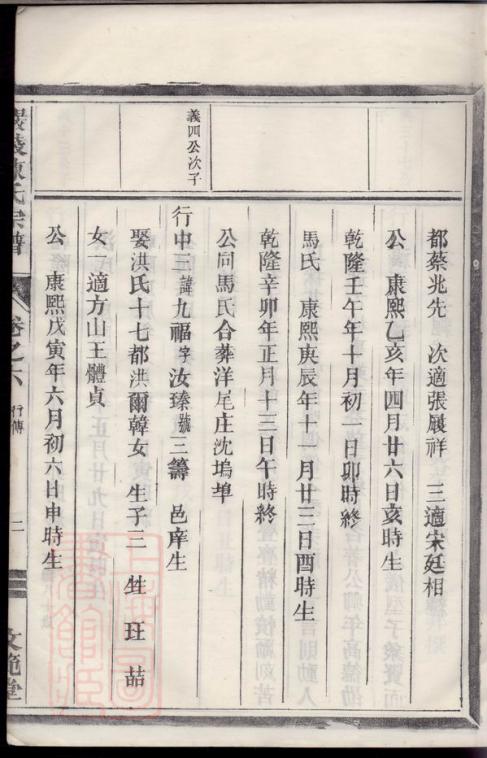 都蔡兆先 次適張展祥 三適宋廷相
公 康熙乙亥年四月廿六日亥時生
乾隆壬午年十月初一日卯時終
馬氏 康熙庚辰年十一月廿三日酉時生
乾隆辛卯年正月十三日午時終
公同馬氏合葬洋尾庄沈塢埠
義四公次子
行中三諱九福字汝臻號三籌 邑庠生
娶洪氏十七都洪爾韓女 生子三 甡 玨 喆
女一適方山王體貞
公 康熙戊寅年六月初六日申時生
陳氏宗譜
卷之六 行傳
二
文範堂